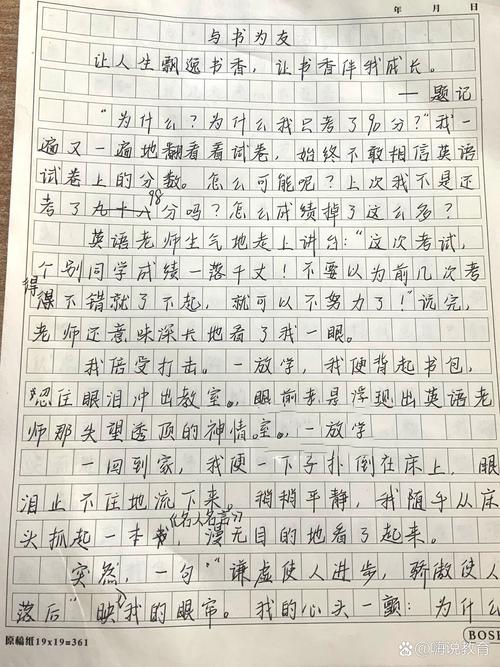 年 月 日
与书为友
让人生飘逸书香，让书香伴我成长。
——题记
“为什么？为什么我只考了90分？”我一
遍又一遍地翻看着试卷，始终不敢相信英语
试卷上的分数。怎么可能呢？上次我不是还
考了98分吗？怎么成绩掉了这么多？
英语老师生气地走上讲台：“这次考试，
个别同学成绩一落千丈！不要以为前几次考
得不错就了不起，就可以不努力了！”说完，
老师还意味深长地看了我一眼。
我倍受打击。一放学，我便背起书包，
忍住眼泪冲出教室。眼前老是浮现出英语老
师那失望透顶的神情。
一回到家，我便一下子扑倒在床上，眼
泪止不住地流下来。稍稍平静，我随手从床
头抓起一本《名人名言》，漫无目的地看了起来。
突然，一句“谦虚使人进步，骄傲使人
落后”映入我的眼帘。我的心头一颤：为什么
原稿纸19×19=361
BOSH
@嗨说教育